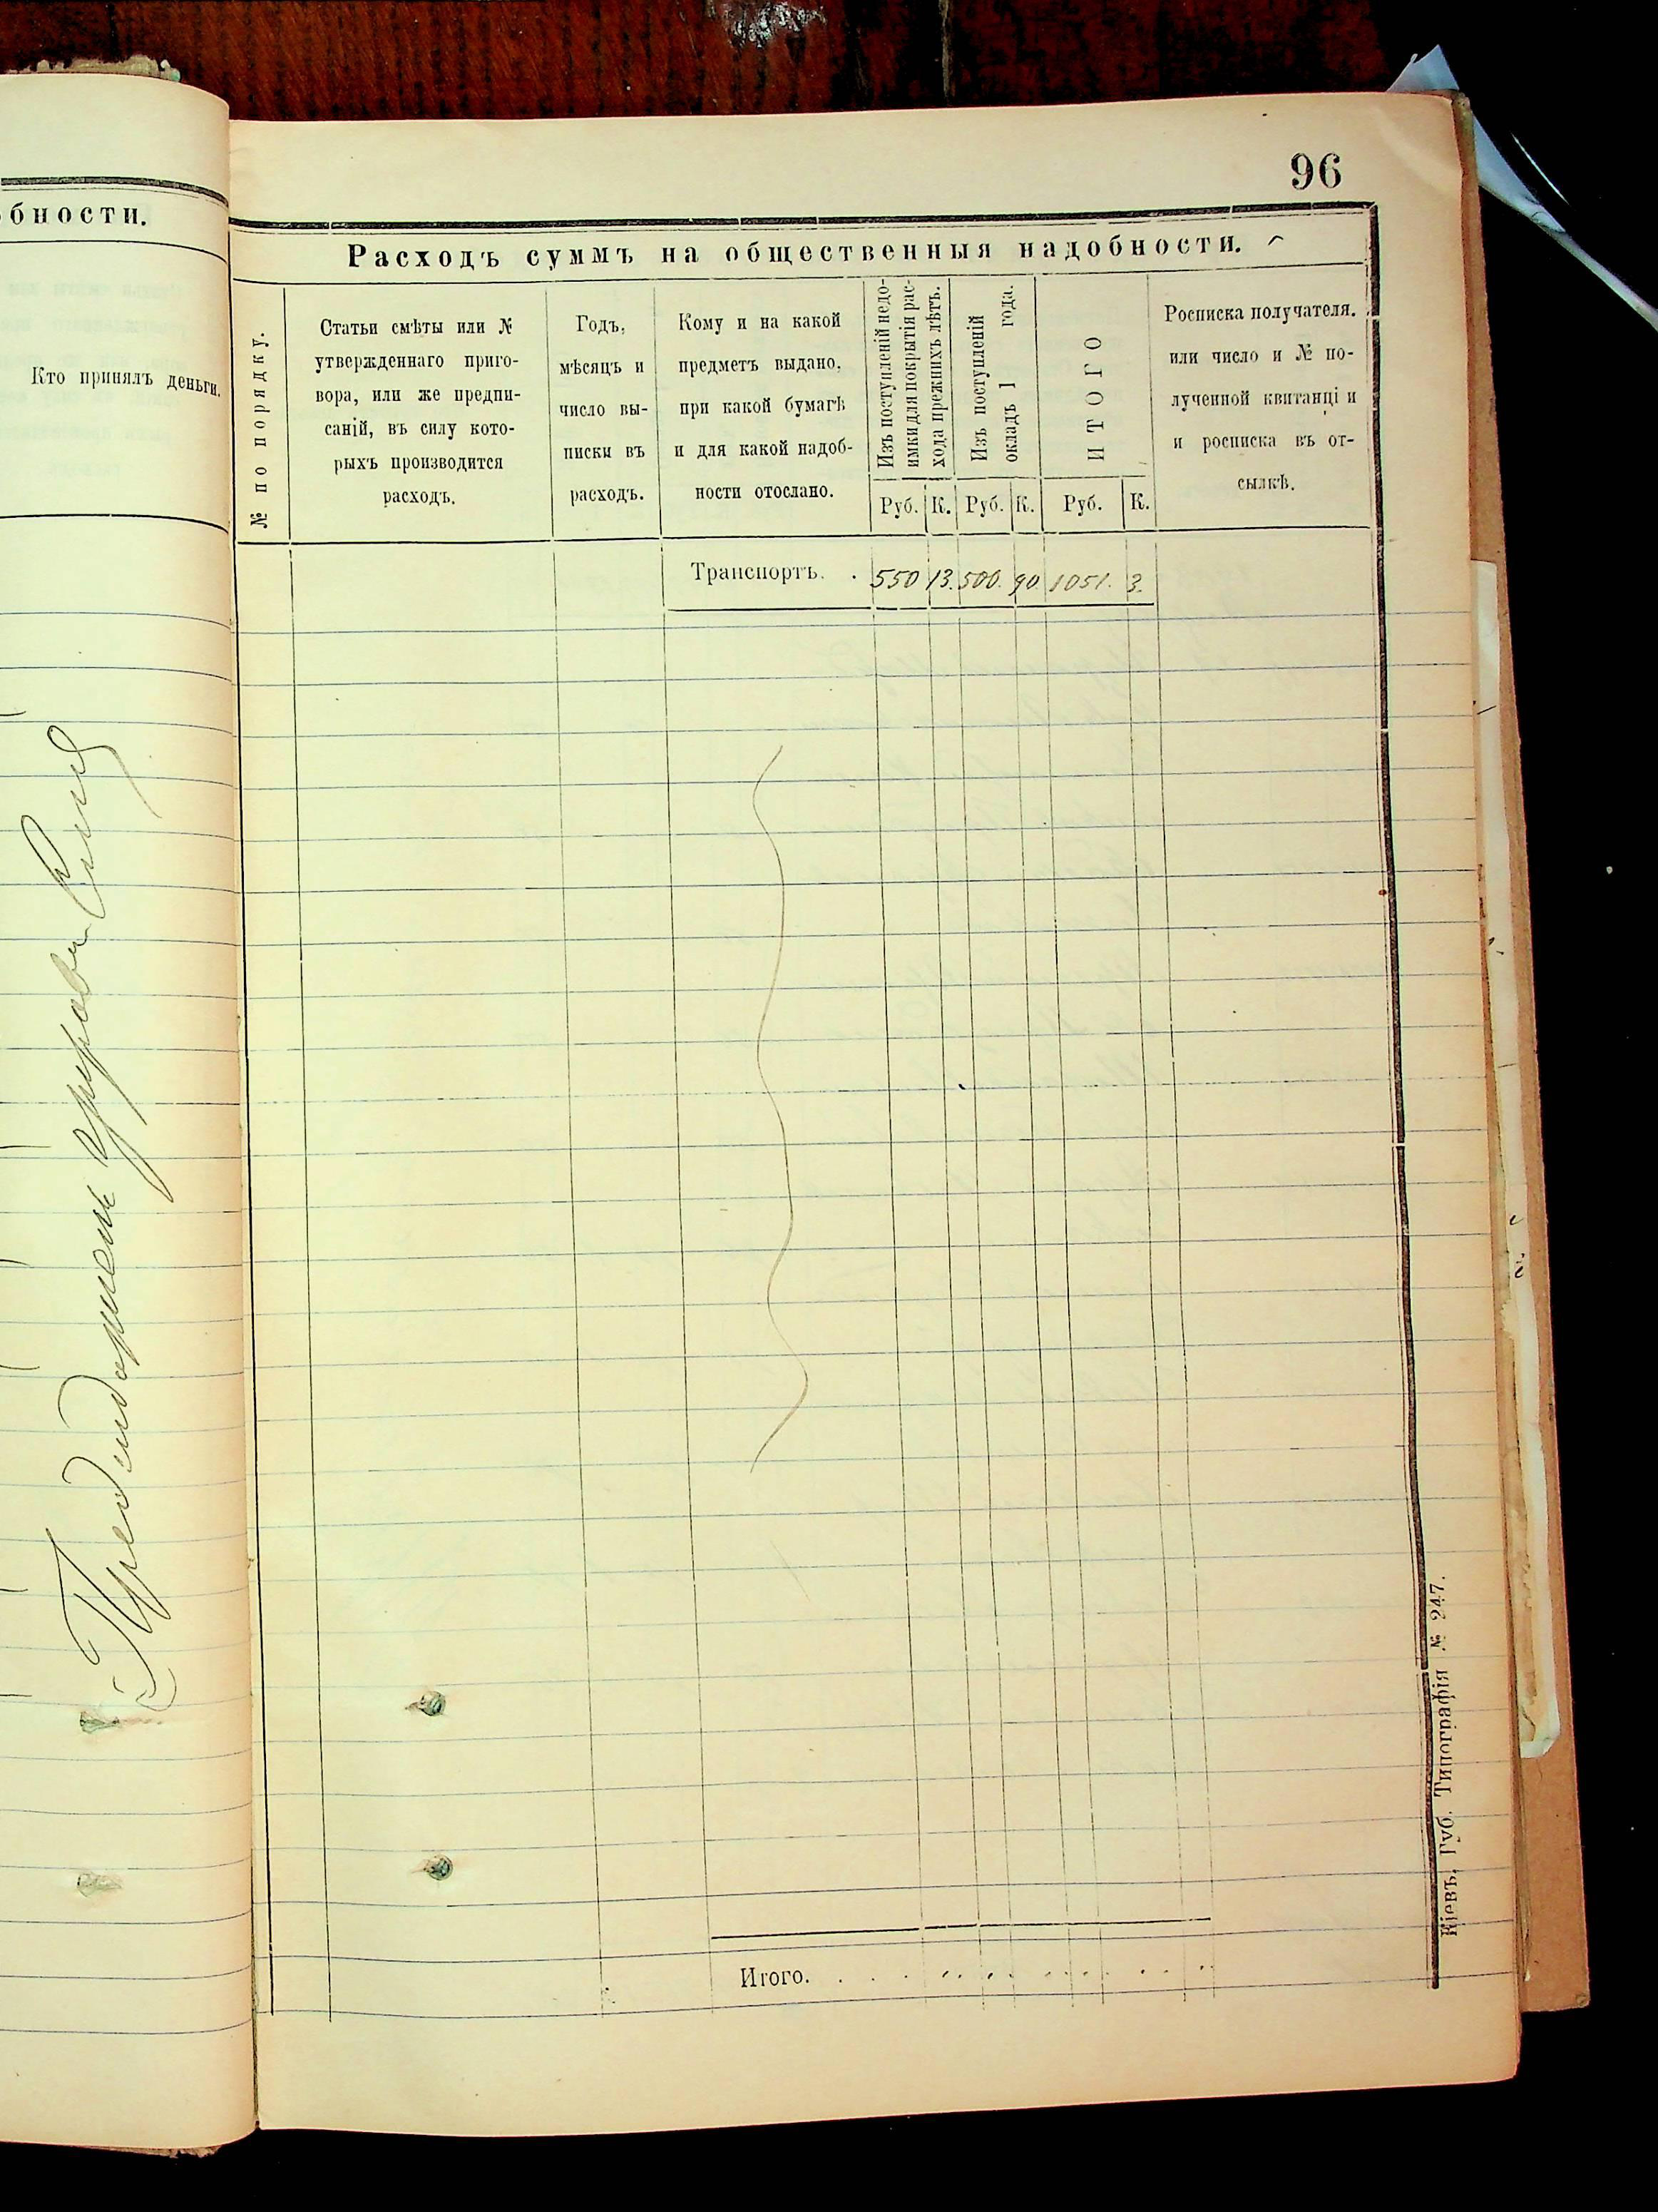 бности.
Кто принялъ деньги.
96
Расходъ суммъ на общественныя надобности.
№ по порядку.
Статьи смѣты или №
утвержденнаго приго-
вора, или же предпи-
саній, въ силу кото-
рыхъ производится
расходъ.
Годъ,
мѣсяцъ и
число вы-
писки въ
расходъ.
Кому и на какой
предметъ выдано,
при какой бумагѣ
и для какой надоб-
ности отослано.
Изъ поступленій недо-
имки для покрытія рас-
хода прежнихъ лѣтъ.
Изъ поступленій
окладъ 1 года.
ИТОГО
Росписка получателя.
или число и № по-
лученной квитанці и
и росписка въ от-
сылкѣ.
Руб. К. Руб. К. Руб. К.
Транспортъ. . 550 13. 500. 90 1051. 3.
Итого.
Кіевъ, Губ. Типографія № 247.